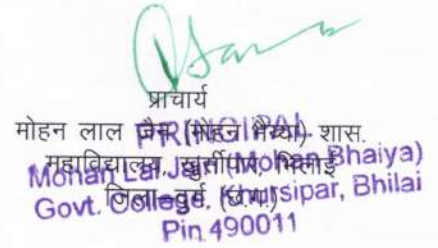 प्राचार्य
मोहन लाल जैन (मोहन भैय्या) शास.
महाविद्यालय, खुर्सीपार, भिलाई
जिला-दुर्ग, (छ.ग.)
PRINCIPAL
Mohan Lal Jain (Mohan Bhaiya)
Govt. College, Khursipar, Bhilai
Pin 490011